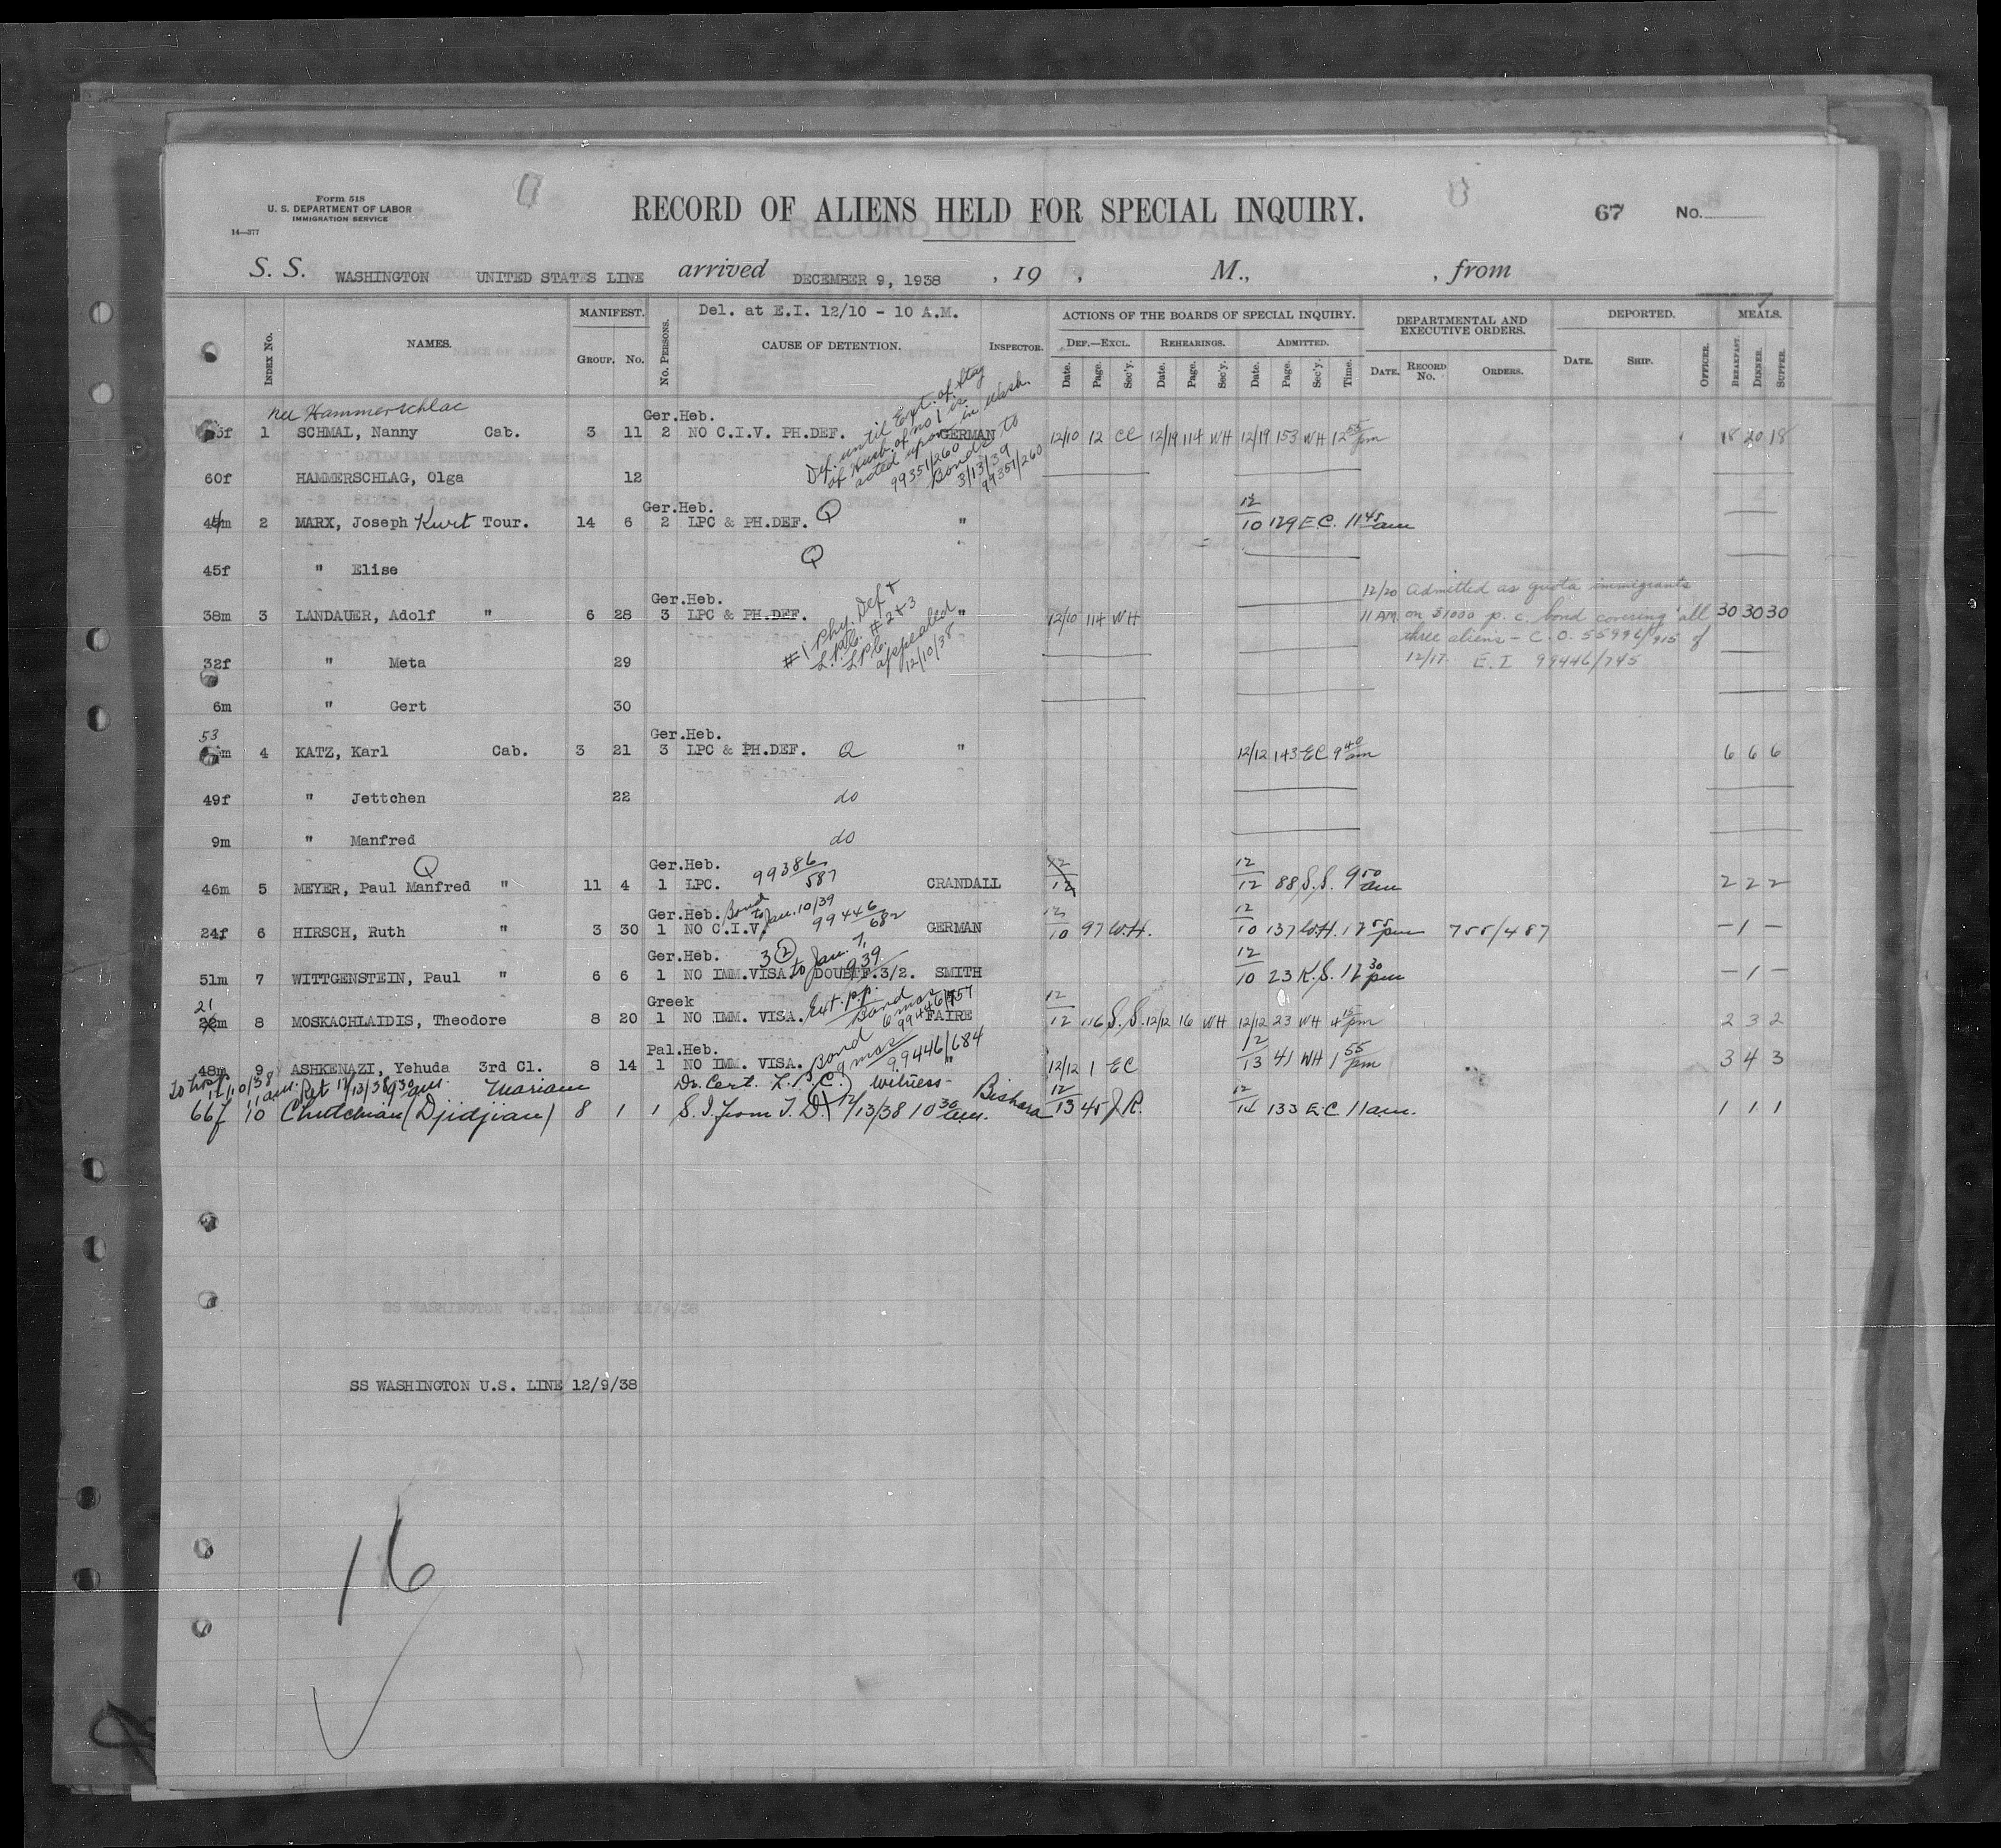 Form 518
U. S. DEPARTMENT OF LABOR
IMMIGRATION SERVICE
14—377
RECORD OF ALIENS HELD FOR SPECIAL INQUIRY.
67 No.
S. S. WASHINGTON UNITED STATES LINE arrived DECEMBER 9, 1938 , 19 , M., , from
Index No. NAMES. MANIFEST. Group. No. No. Persons. Del. at E.I. 12/10 - 10 A.M. CAUSE OF DETENTION. Inspector. ACTIONS OF THE BOARDS OF SPECIAL INQUIRY. Def.—Excl. Date. Page. Sec'y. Rehearings. Date. Page. Sec'y. Admitted. Date. Page. Sec'y. Time. DEPARTMENTAL AND EXECUTIVE ORDERS. Date. Record No. Orders. DEPORTED. Date. Ship. Officer. MEALS. Breakfast. Dinner. Supper.
nee Hammerschlac
Ger.Heb.
1 SCHMAL, Nanny Cab. 3 11 2 NO C.I.V. PH.DEF. GERMAN 12/10 12 CC 12/19 114 WH 12/19 153 WH 12 55 pm 18 20 18
Def. until Ext. of Stay
of Husb. of no 1 is
acted upon in Wash.
99351/260
Bonds to
3/13/39
99351/260
60f HAMMERSCHLAG, Olga 12
Ger.Heb.
2 MARX, Joseph Kurt Tour. 14 6 2 LPC & PH.DEF. Q " 12/10 129 E.C. 11 45 am
45f " Elise Q
Ger.Heb.
38m 3 LANDAUER, Adolf " 6 28 3 LPC & PH.DEF. " 12/10 114 WH 30 30 30
#1 Phy. Def &
L.P.C. #2 & 3
L.P.C.
appealed
12/10/38
12/20 Admitted as quota immigrants
11 AM. on $1000 p. c. bond covering all
three aliens - C.O. 55996/915 of
12/17. E.I 99446/745
32f " Meta 29
6m " Gert 30
Ger.Heb.
53 4 KATZ, Karl Cab. 3 21 3 LPC & PH.DEF. Q " 12/12 143 EC 9 40 am 6 6 6
49f " Jettchen 22 do
9m " Manfred do
Q
Ger.Heb. 99386/587
46m 5 MEYER, Paul Manfred " 11 4 1 LPC. CRANDALL 12/12 12/12 88 S.S. 9 50 am 2 2 2
Ger.Heb. Bond to Jan. 10/39 99446/682
24f 6 HIRSCH, Ruth " 3 30 1 NO C.I.V. GERMAN 12/10 97 W.H. 12/10 137 W.H. 12 55 pm 755/487 - 1 -
Ger.Heb. 3 2 to Jan. 7, 939.
51m 7 WITTGENSTEIN, Paul " 6 6 1 NO IMM.VISA. DOUBTF.3/2. SMITH 12/10 23 K.S. 12 30 pm - 1 -
Greek Ext. pp. Bond 6 mos
21 8 MOSKACHLAIDIS, Theodore 8 20 1 NO IMM. VISA. FAIRE 12/12 116 S.S. 12/12 16 WH 12/12 23 WH 4 15 pm 2 3 2
Pal.Heb. Bond 9 mos 99446/684
48m 9 ASHKENAZI, Yehuda 3rd Cl. 8 14 1 NO IMM. VISA. " 12/12 1 EC 12/13 41 WH 1 55 pm 3 4 3
To hosp. 12/10/38 11 am. Ret 12/13/38 9 30 am. Mariam Dr. Cert. L.P.C. Witness-
66f 10 Chutchian (Djidjian) 8 1 1 S.I. from T.D. 12/13/38 10 30 am. Bishara 12/13 45 J.R. 12/14 133 E.C. 11 am. 1 1 1
SS WASHINGTON U.S. LINES 12/9/38
SS WASHINGTON U.S. LINE 12/9/38
16